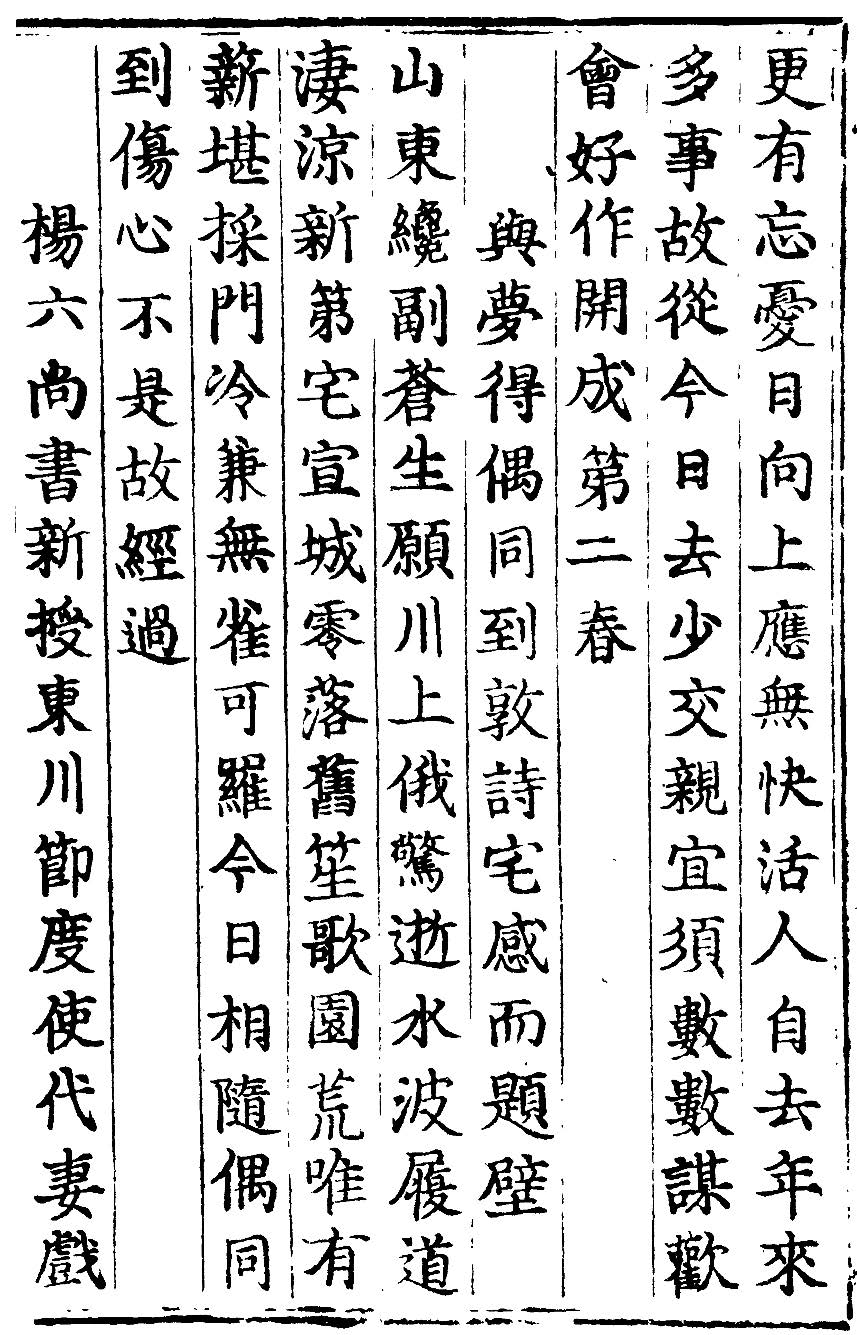 更有忘憂日向上應無快活人自去年來
多事故從今日去少交親宜須數數謀歡
會好作開成第二春
與夢得偶同到敦詩宅感而題壁
山東纔副蒼生願川上俄驚逝水波履道
淒涼新第宅宣城零落舊笙歌園荒唯有
薪堪採門冷兼無雀可羅今日相隨偶同
到傷心不是故經過
楊六尚書新授東川節度使代妻戲